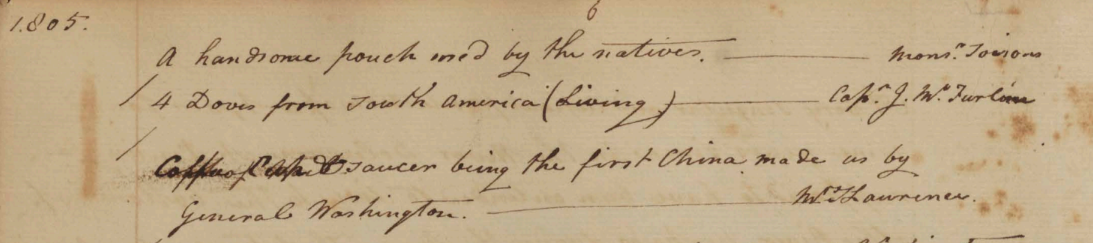 1805.
6
A handsome pouch used by the natives. Monsr.
4 Doves from South America (Living) Capn. J. Mc.
Coffee Cup & saucer being the first China made us by
General Washington. Lawrence.